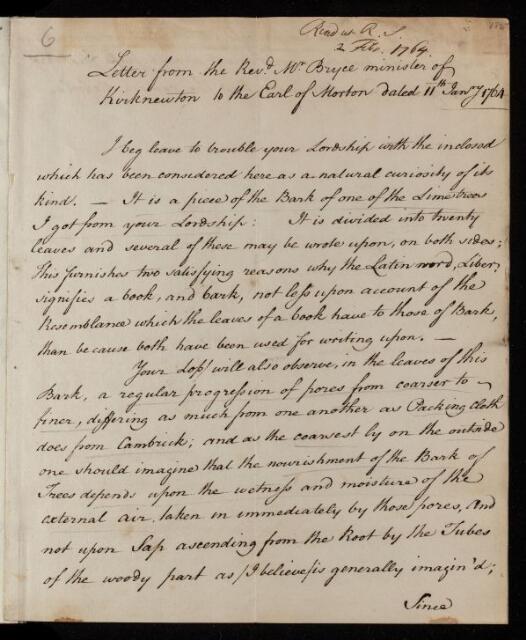 6
Read at R. S.
2 Feb. 1764.
Letter from the Revd. Mr Bryce minister of
Kirknewton to the Earl of Morton dated 11th Jany 1764
I beg leave to trouble your Lordship with the inclosed
which has been considered here as a natural curiosity of its
kind. — It is a piece of the Bark of one of the Limetrees
I got from your Lordship: It is divided into twenty
leaves and several of these may be wrote upon, on both sides;
This furnishes two satisfying reasons why the Latin word, Liber,
signifies a book, and bark, not less upon account of the
Resemblance which the leaves of a book have to those of Bark,
than because both have been used for writing upon. —
Your Lo/p will also observe, in the leaves of this
Bark, a regular progression of pores from coarser to
finer, differing as much from one another as Packing cloth
does from Cambrick; and as the coarsest ly on the outside
one should imagine that the nourishment of the Bark of
Trees depends upon the wetness and moisture of the
external air, taken in immediately by those pores, and
not upon Sap ascending from the Root by the Tubes
of the woody part as /I believe/ is generally imagin'd;
Since